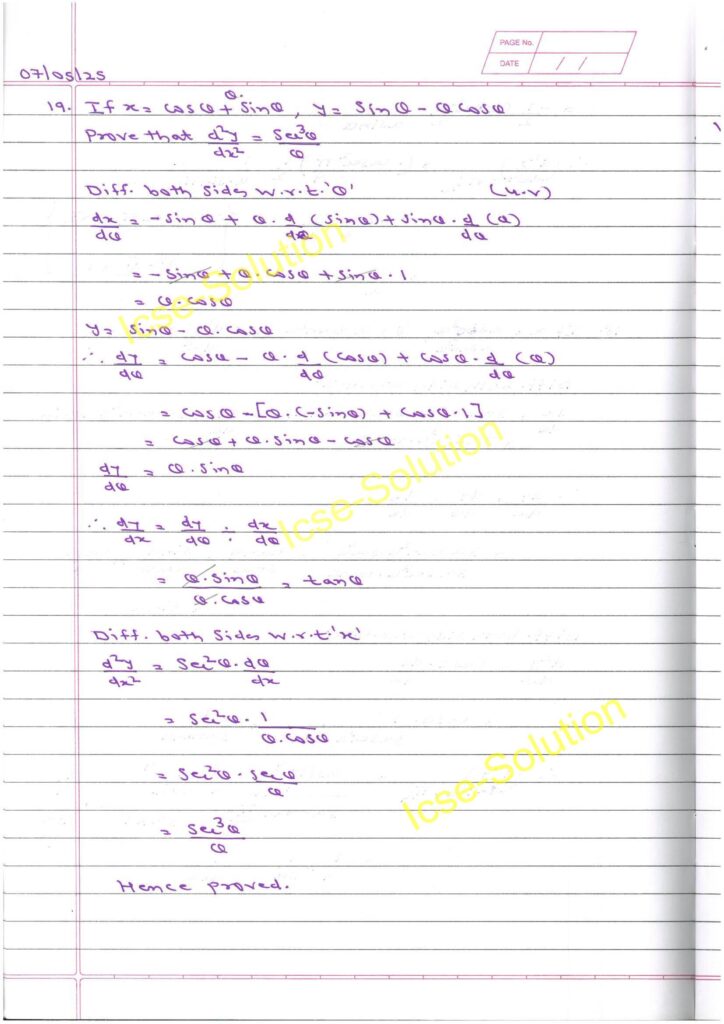 PAGE No.
DATE / /
07/05/25
19. If x = cosθ + θ.sinθ, y = sinθ - θcosθ
Prove that d²y/dx² = sec³θ/θ
Diff. both sides w.r.t.'θ' (u.v)
dx/dθ = -sinθ + θ.d/dθ (sinθ) + sinθ.d/dθ (θ)
= -sinθ + θ.cosθ + sinθ.1
= θ.cosθ
y = sinθ - θ.cosθ
∴ dy/dθ = cosθ - θ.d/dθ (cosθ) + cosθ.d/dθ (θ)
= cosθ - [θ.(-sinθ) + cosθ.1]
= cosθ + θ.sinθ - cosθ
dy/dθ = θ.sinθ
∴ dy/dx = dy/dθ ÷ dx/dθ
= θ.sinθ/θ.cosθ = tanθ
Diff. both sides w.r.t.'x'
d²y/dx² = sec²θ.dθ/dx
= sec²θ.1/θ.cosθ
= sec²θ.secθ/θ
= sec³θ/θ
Hence proved.
Icse-Solution
Icse-Solution
Icse-Solution